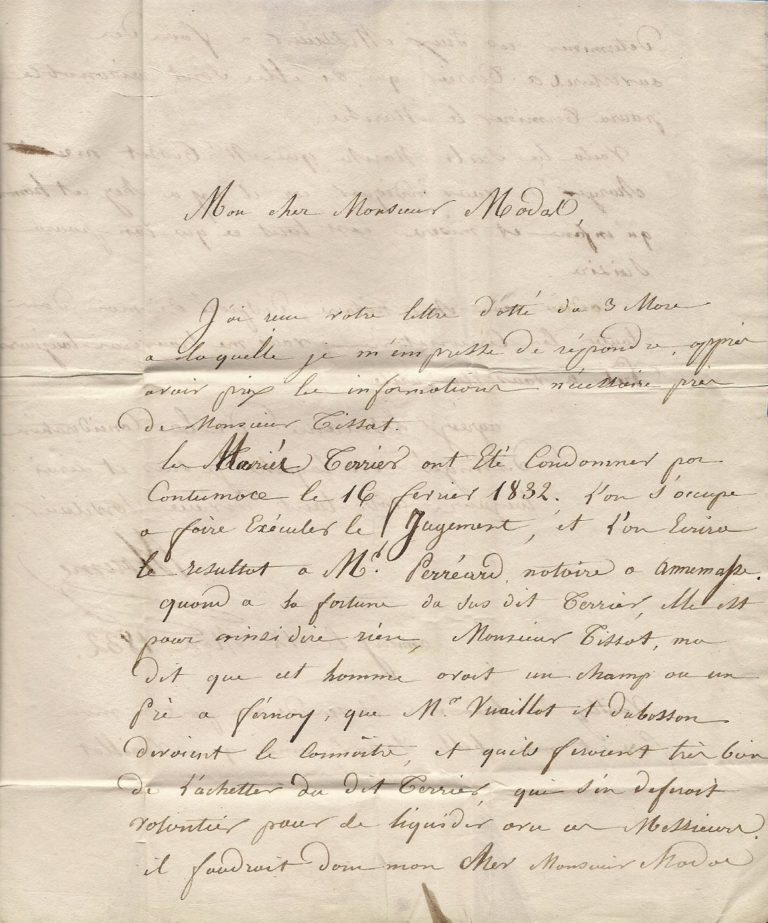 Mon cher Monsieur Modal,
J'ai reçu votre lettre dotté du 3 More
a laquelle je m'empresse de répondre, apprès
avoir prix le informations nécéssaire près
de Monsieur Tissat.
les Mariés Terrier ont Eté Condamner par
Contumace le 16 fevrier 1832. L'on s'occupe
a faire Exécuter le Jugement, et L'on Ecrira
le resultat a Mr. Perréard, notaire a annemasse.
quand a la fortune du sus dit Terrier, Elle est
pour ainsi dire rien, Monsieur Tissot, ma
dit que cet homme avait un champ ou un
Pré a férnay, que Mr. Vuaillot et dubosson
devroient le Connoitre, et quils feroient très bien
de L'achetter du dit Terrier, qui s'en deferoit
volontiér pour se liquider avec ces Messieurs.
il faudroit donc mon Cher Monsieur Modal